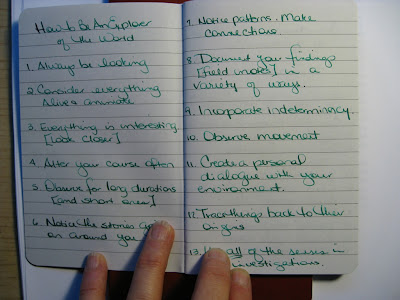 How to Be An Explorer
of the World
1. Always be looking
2. Consider everything
alive & animate
3. Everything is interesting
[look closer]
4. Alter your course often
5. Observe for long durations
[and short ones]
6. Notice the stories
on around you
7. Notice patterns. Make
connections.
8. Document your findings
[field notes] in a
variety of ways.
9. Incorporate indeterminancy.
10. Observe movement
11. Create a personal
dialogue with your
environment.
12. Trace things back to their
origins
13. all of the senses in
investigations.